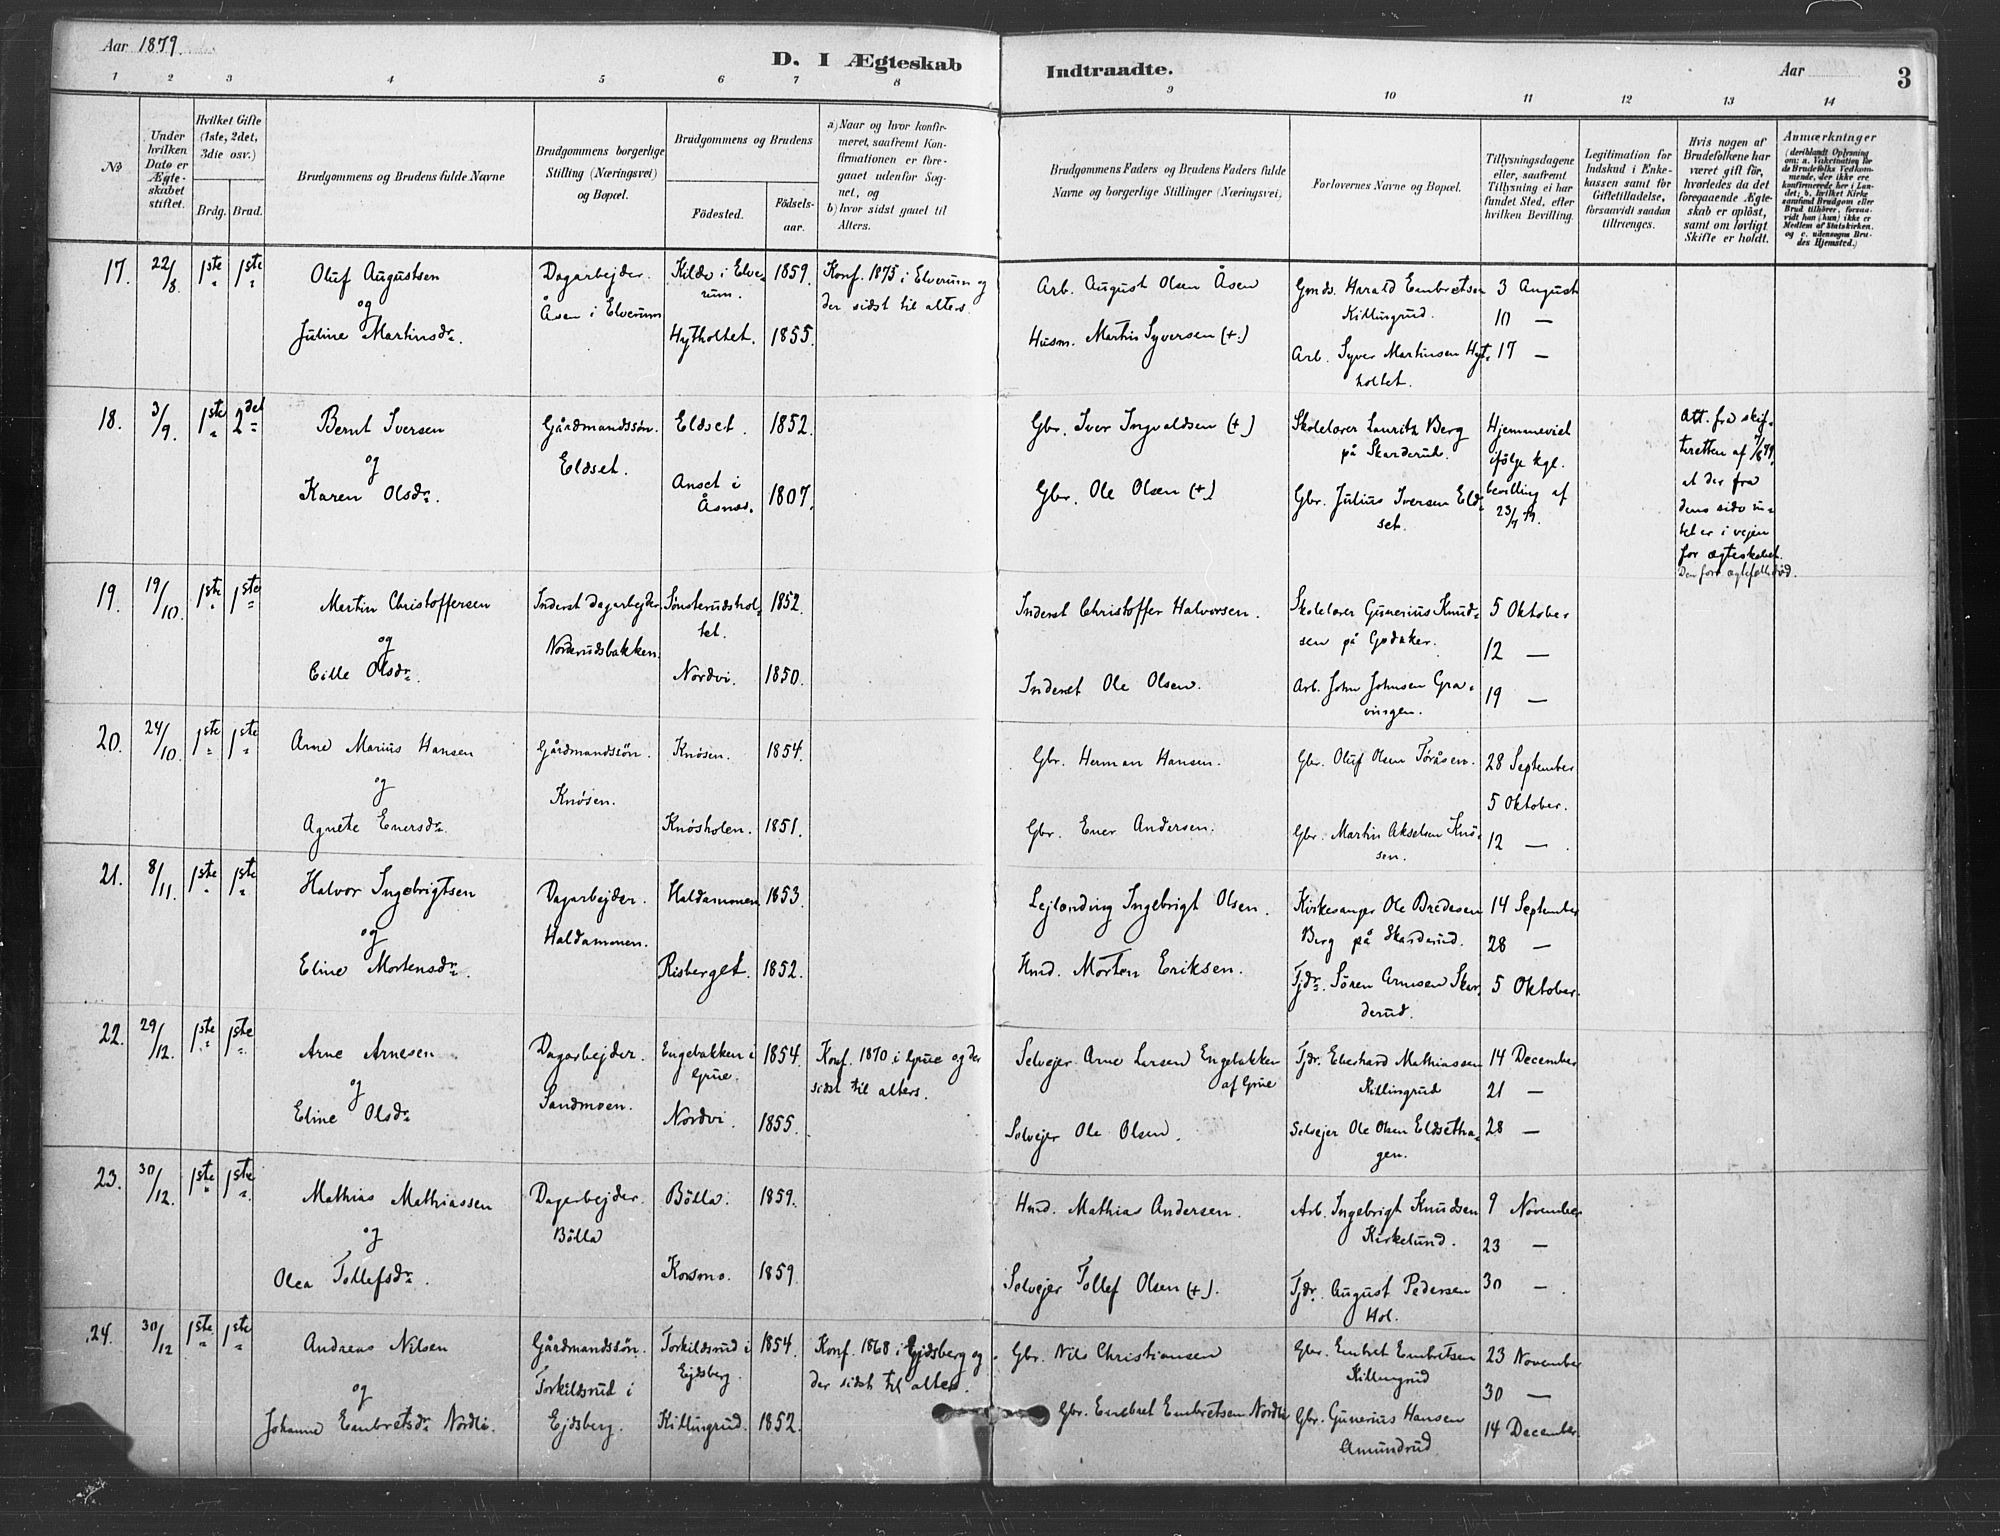 Aar 1879.
D. I Ægteskab Indtraadte.
Aar
3
1 2 3 4 5 6 7 8 9 10 11 12 13 14
No
Under hvilken Dato er Ægteskabet stiftet.
Hvilket Gifte (1ste, 2det, 3die osv.)
Brdg. Brud.
Brudgommens og Brudens fulde Navne
Brudgommens borgerlige Stilling (Næringsvei) og Bopæl.
Brudgommens og Brudens
Födested. Födselsaar.
a) Naar og hvor konfirmeret, saafremt Konfirmationen er foregaaet udenfor Sognet, og
b) hvor sidst gaaet til Alters.
Brudgommens Faders og Brudens Faders fulde Navne og borgerlige Stillinger (Næringsvei)
Forlovernes Navne og Bopæl.
Tillysningsdagene eller, saafremt Tillysning ei har fundet Sted, efter hvilken Bevilling.
Legitimation for Indskud i Enkekassen samt for Giftetilladelse, forsaavidt saadan tiltrænges.
Hvis nogen af Brudefolkene har været gift för, hvorledes da det foregaaende Ægteskab er oplöst, samt om lovligt Skifte er holdt.
Anmærkninger
(deriblandt Oplysning om: a. Vakcination for de Brudefolks Vedkommende, der ikke ere konfirmerede her i Landet; b. hvilket Kirkesamfund Brudgom eller Brud tilhörer, forsaavidt han (hun) ikke er Medlem af Statskirken, og c. udensogns Brudes Hjemsted.)
17. 22/8. 1ste 1ste Oluf Augustsen Dagarbejder. Kilde i Elverum. 1859. Konf. 1875 i Elverum og der sidst til alters. Arb. August Olsen Åsen Gmds. Harald Embretsen Killingrud. 3 August
og Åsen i Elverum 10 —
Juline Martinsdr. Hytholtet. 1855. Husm. Martin Syversen (+) Arb. Syver Martinsen Hytholtet. 17 —
18. 3/9. 1ste 2det Bernt Iversen Gårdmandssøn. Eldset. 1852. Gbr. Iver Ingvaldsen (+) Skolelærer Lauritz Berg på Skarderud. Hjemmeviet ifølge kgl. bevilling af 23/7 79. Att. fra skifteretten af 7/8 79. at der fra dens side intet er i vejen for ægteskabet.
og Eldset.
Karen Olsdr. Anset i Åsnes. 1807. Gbr. Ole Olsen (+) Gbr. Julius Iversen Eldset. Den forr. ægtefælle død.
19. 19/10. 1ste 1ste Martin Christoffersen Inderst Dagarbejder Sønsterudsholtet. 1852. Inderst Christoffer Halvorsen. Skolelærer Gunerius Knudsen på Gødaker. 5 Oktober
og Norderudsbakken. 12 —
Cille Olsdr. Nordvi. 1850. Inderst Ole Olsen. Arb. John Johnsen Gravingen. 19 —
20. 24/10. 1ste 1ste Arne Marius Hansen Gårdmandssøn. Knøsen. 1854. Gbr. Herman Hansen. Gbr. Oluf Olsen Toråsen. 28 September
og Knøsen. 5 Oktober.
Agnete Enersdr. Knøsholen. 1851. Gbr. Ener Andersen. Gbr. Martin Akselsen Knøsen. 12 —
21. 8/11. 1ste 1ste Halvor Ingebrigtsen Dagarbejder. Haldammen. 1853. Lejlænding Ingebrigt Olsen. Kirkesanger Ole Bredesen Berg på Skarderud. 14 September
og Haldammen. 28 —
Eline Mortensdr. Risberget. 1852. Hmd. Morten Eriksen. Tjdr. Sören Arnesen Skarderud. 5 Oktober.
22. 29/12. 1ste 1ste Arne Arnesen Dagarbejder. Engebakken i Grue. 1854. Konf. 1870 i Grue og der sidst til alters. Selvejer Arne Larsen Engebakken af Grue Tjdr. Eberhard Mathiassen Killingrud 14 December
og Sandmoen. 21 —
Eline Olsdr. Nordvi. 1855. Selvejer Ole Olsen. Selvejer Ole Olsen Eldsethagen. 28 —
23. 30/12. 1ste 1ste Mathias Mathiassen Dagarbejder. Bölla. 1859. Hmd. Mathias Andersen. Arb. Ingebrigt Knudsen Kirkelund. 9 November
og Bölla 23 —
Olea Tollefsdr. Korsmo. 1859. Selvejer Tollef Olsen (+). Tjdr. August Pedersen Hol. 30 —
24. 30/12 1ste 1ste Andreas Nilsen Gårdmandssön. Torkildsrud i Ejdsberg. 1854. Konf. 1868 i Ejdsberg og der sidst til alters. Gbr. Nils Christiansen Gbr. Embret Embretsen Killingrud 23 November
og Torkildsrud i 30 —
Johanne Embretsdr. Nordli. Ejdsberg. Killingrud. 1852. Gbr. Embret Embretsen Nordli Gbr. Gunerius Hansen Amundrud 14 December.